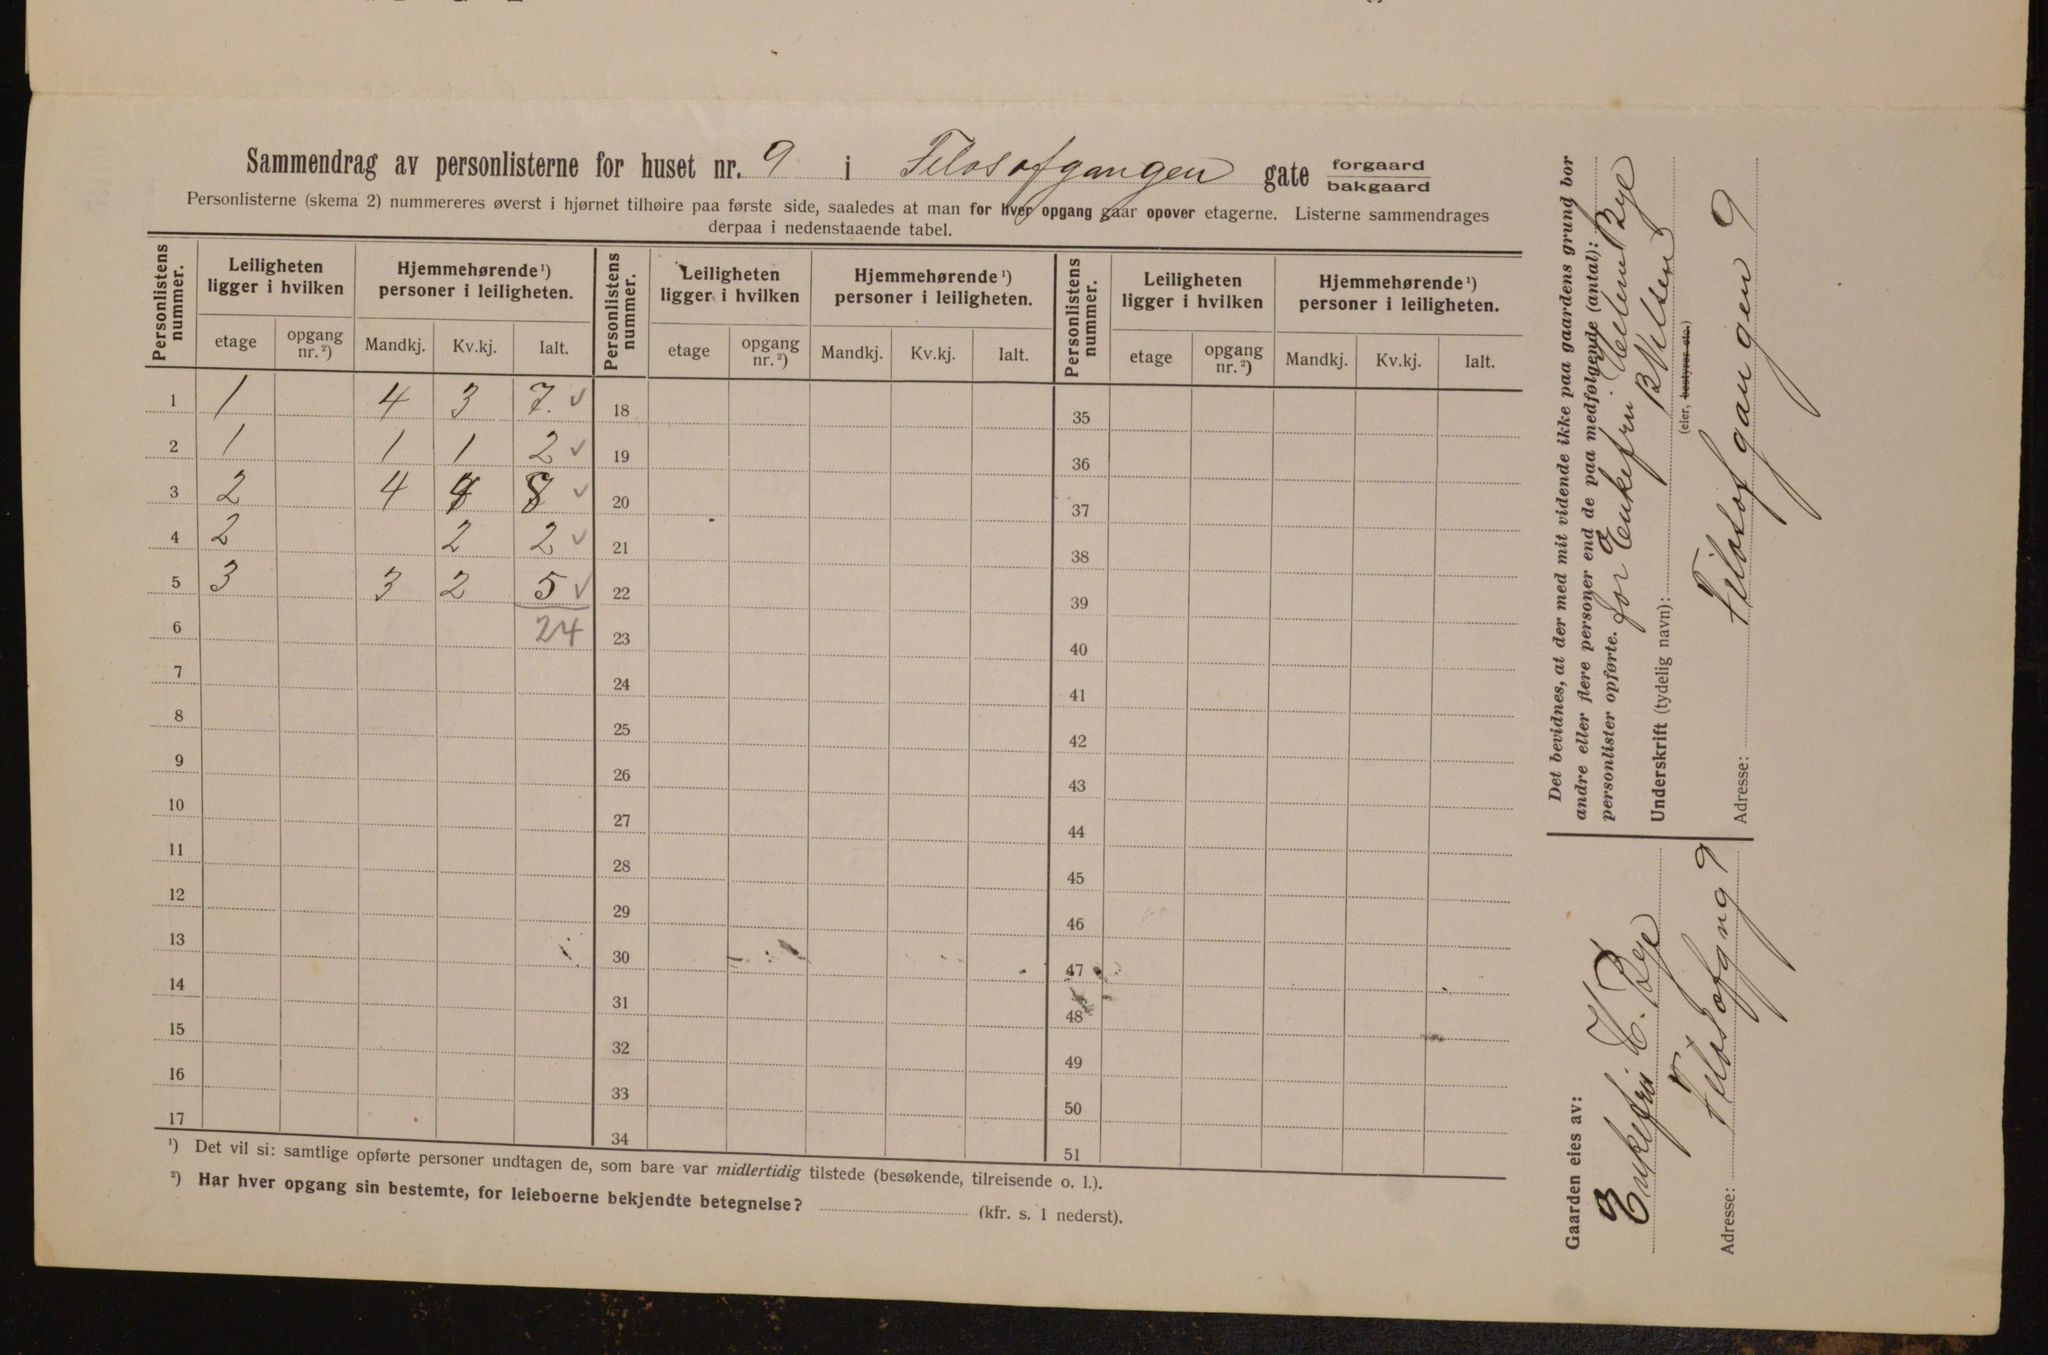 Sammendrag av personlisterne for huset nr. 9 i Filosofgangen gate forgaard
bakgaard
Personlisterne (skema 2) nummereres øverst i hjørnet tilhøire paa første side, saaledes at man for hver opgang gaar opover etagerne. Listerne sammendrages
derpaa i nedenstaaende tabel.
Personlistens nummer. Leiligheten ligger i hvilken Hjemmehørende¹) personer i leiligheten. Personlistens nummer. Leiligheten ligger i hvilken Hjemmehørende¹) personer i leiligheten. Personlistens nummer. Leiligheten ligger i hvilken Hjemmehørende¹) personer i leiligheten.
etage opgang nr.²) Mandkj. Kv.kj. Ialt. etage opgang nr.²) Mandkj. Kv.kj. Ialt. etage opgang nr.²) Mandkj. Kv.kj. Ialt.
1 1 4 3 7. ✓ 18 35
2 1 1 1 2 ✓ 19 36
3 2 4 4 8 ✓ 20 37
4 2 2 2 ✓ 21 38
5 3 3 2 5 ✓ 22 39
6 24 23 40
7 24 41
8 25 42
9 26 43
10 27 44
11 28 45
12 29 46
13 30 47
14 31 48
15 32 49
16 33 50
17 34 51
¹) Det vil si: samtlige opførte personer undtagen de, som bare var midlertidig tilstede (besøkende, tilreisende o. l.).
²) Har hver opgang sin bestemte, for leieboerne bekjendte betegnelse? (kfr. s. 1 nederst).
Det bevidnes, at der med mit vidende ikke paa gaardens grund bor
andre eller flere personer end de paa medfølgende (antal):
personlister opførte. for Enkefru Helene Bye
Underskrift (tydelig navn): B Nilsen
(eier, bestyrer etc.)
Adresse: Filosofgangen 9
Gaarden eies av:
Enkefru H. Bye
Adresse: Filosofgng 9